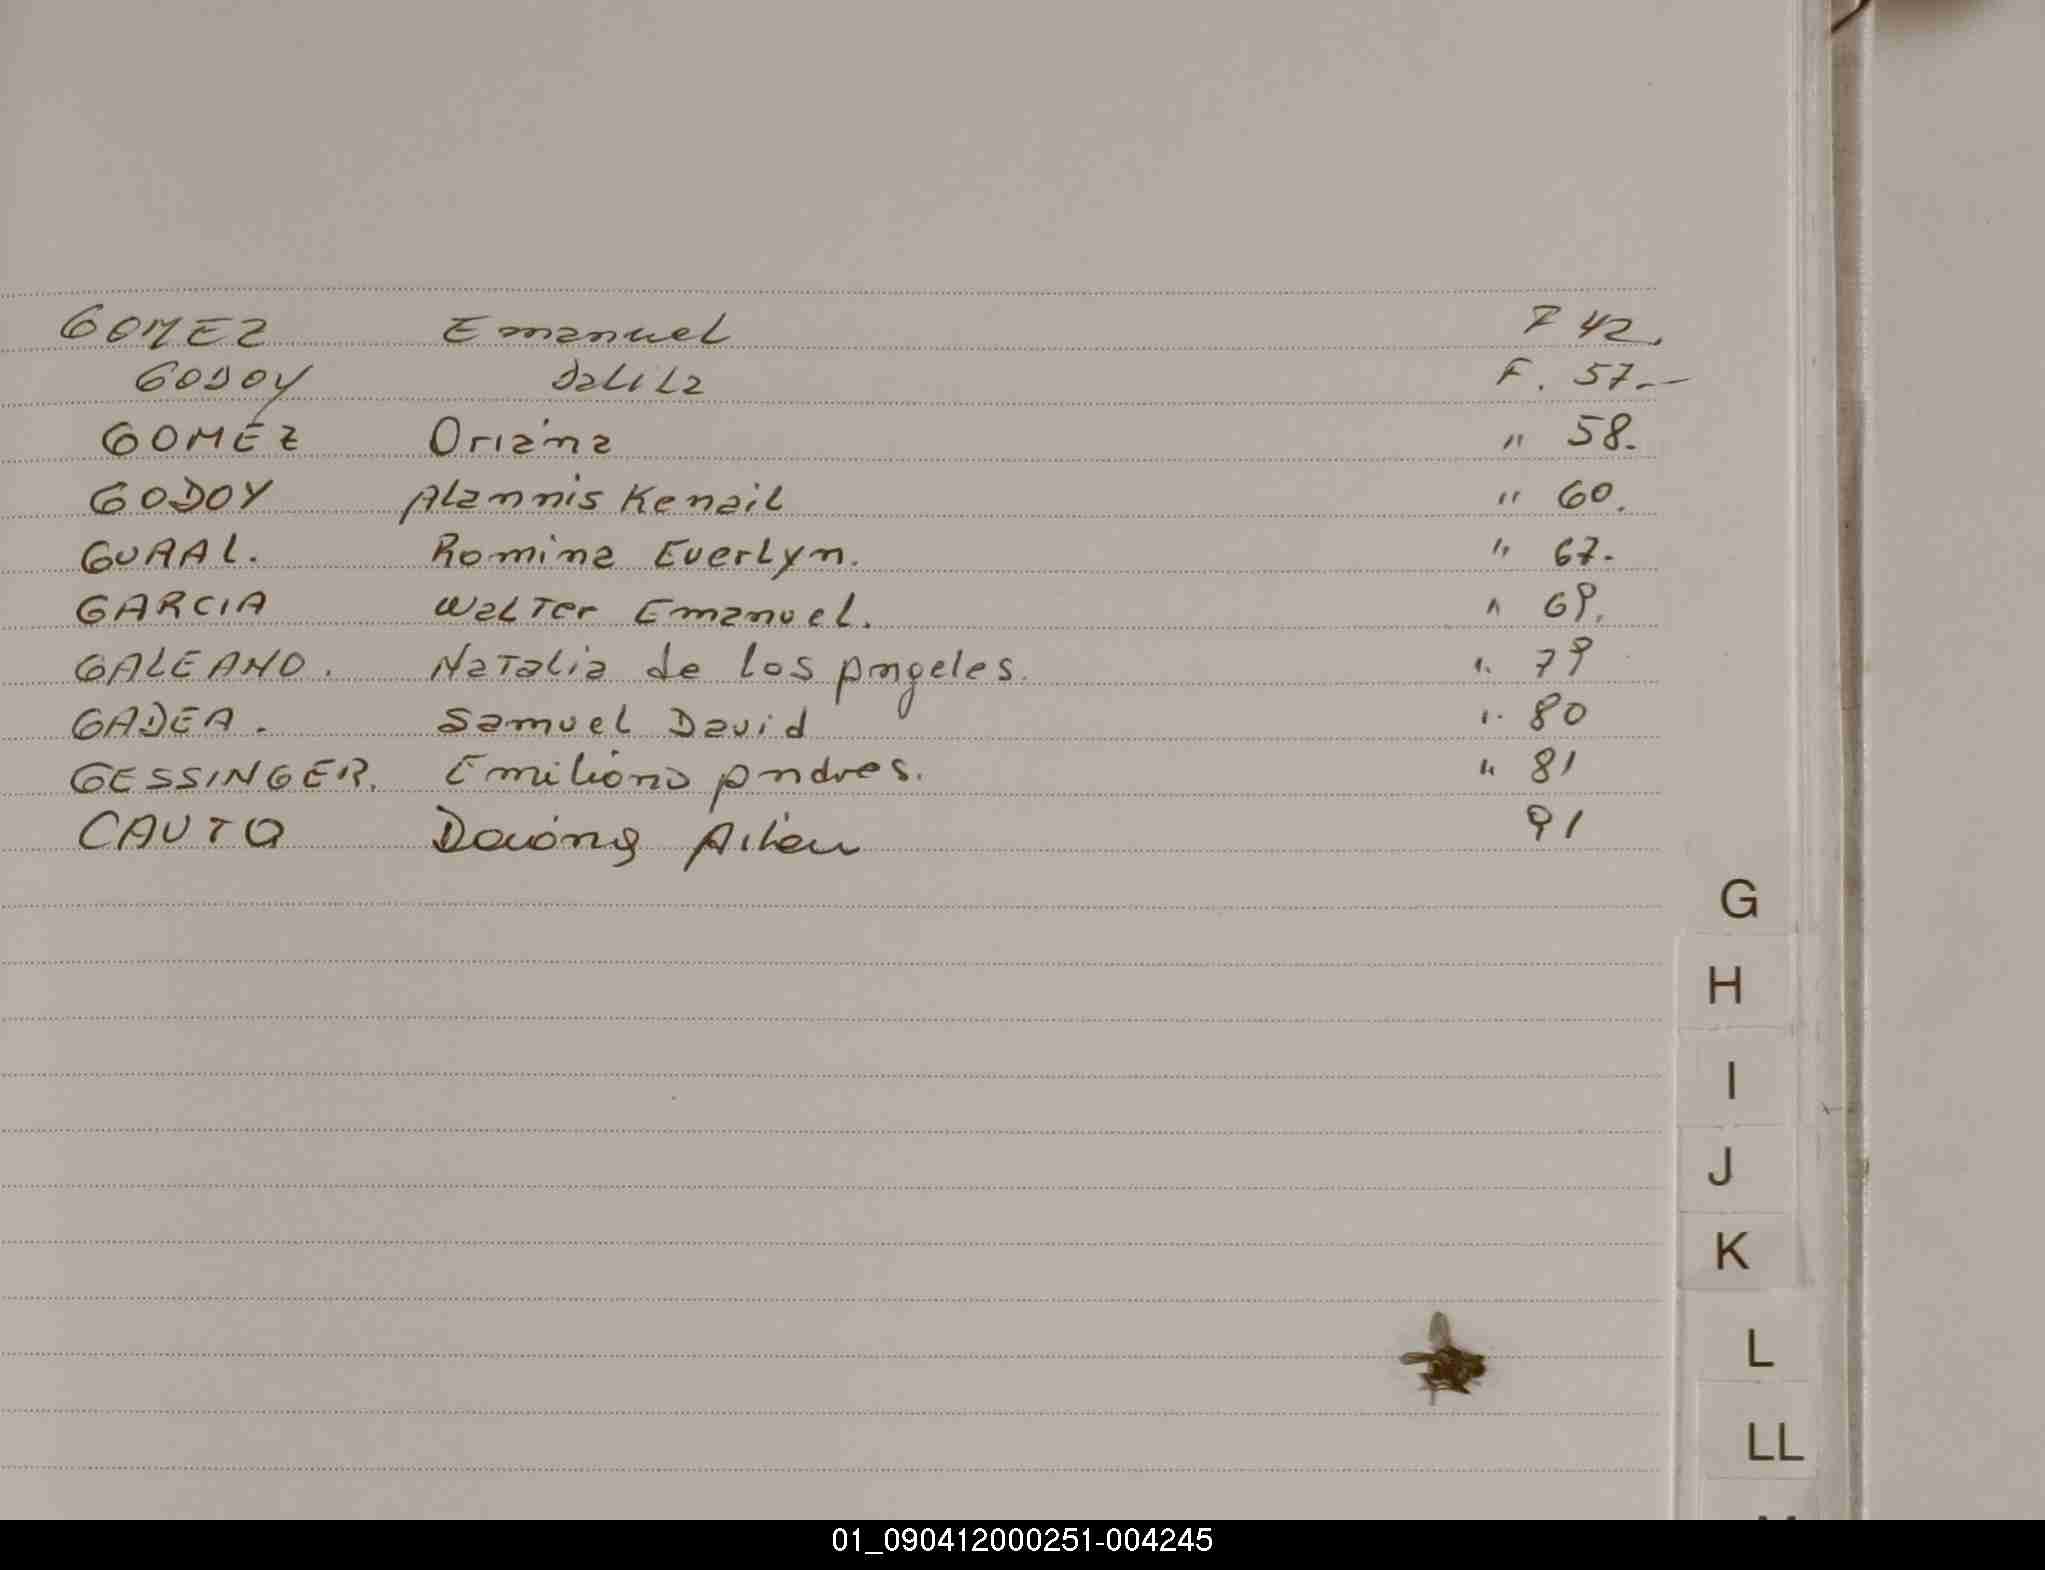 GOMEZ Emanuel F 42.
GODOY Dalila F. 57.-
GOMEZ Oriana " 58.
GODOY Alannis Kenail " 60.
GURAL. Romina Everlyn. " 67.
GARCIA Walter Emanuel. " 69.
GALEANO. Natalia de los Angeles. " 79
GADEA. Samuel David " 80
GESSINGER. Emiliano Andres. " 81
CAUTO 91
G
H
I
J
K
L
LL
01_090412000251-004245